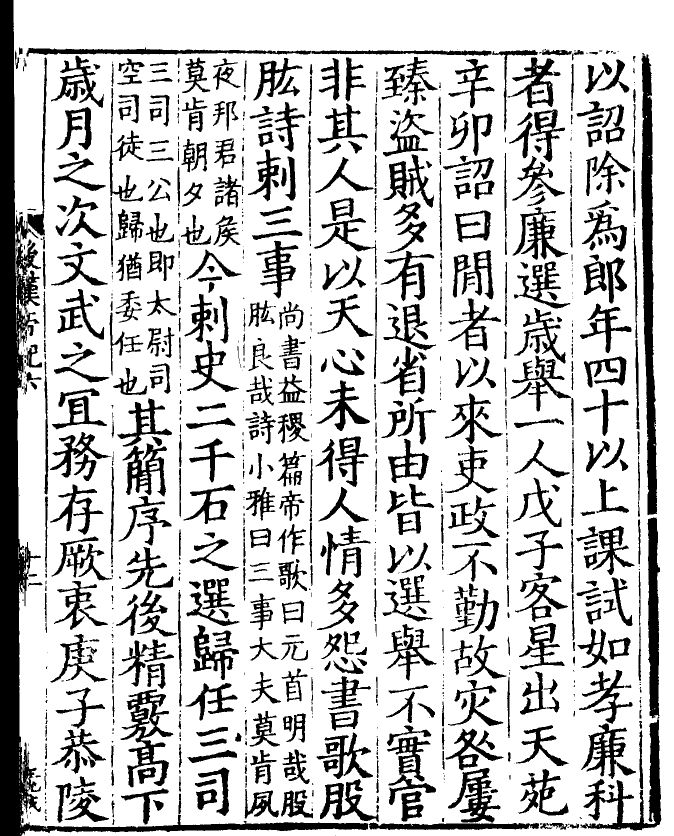 以詔除爲郎年四十以上課試如孝廉科
者得參廉選歳舉一人戊子客星出天苑
辛卯詔曰閒者以來吏政不勤故灾咎屢
臻盜賊多有退省所由皆以選舉不實官
非其人是以天心未得人情多怨書歌股
肱詩刺三事尚書益稷篇帝作歌曰元首明哉股
肱良哉詩小雅曰三事大夫莫肯夙
夜邦君諸矦
莫肯朝夕也今刺史二千石之選歸任三司
三司三公也即太尉司
空司徒也歸猶委任也其簡序先後精覈髙下
歳月之次文武之冝務存厥衷庚子恭陵
後漢帝紀六
十二